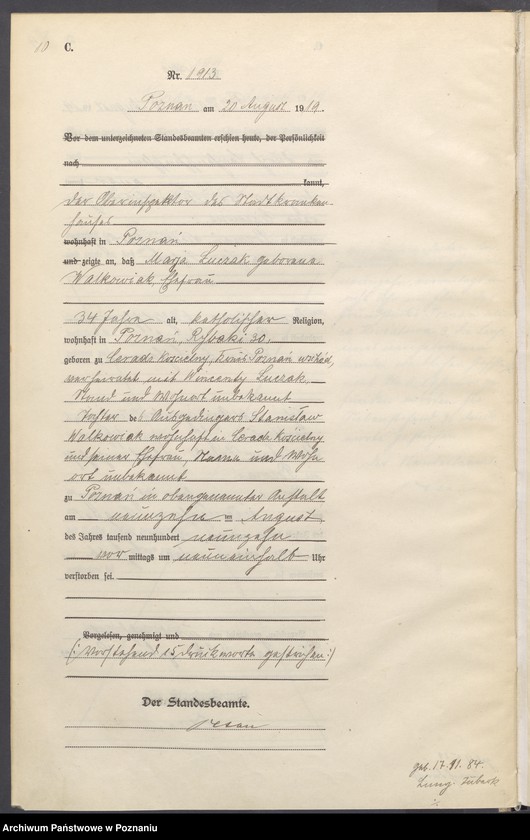 10 C.
Nr. 1913
Poznań am 20 August 1919.
Vor dem unterzeichneten Standesbeamten erschien heute, der Persönlichkeit
nach
kannt,
der Oberinspektor des Stadtkranken-
hauses
wohnhaft in Poznań
und zeigte an, daß Marja Luczak geborene
Walkowiak, Ehefrau
34 Jahre alt, katholischer Religion,
wohnhaft in Poznań, Rybaki 30,
geboren zu Cerade Koscielny, Kreis Poznań wschód,
verheiratet mit Wincenty Luczak,
Stand und Wohnort unbekannt
Tochter des Ausgedingers Stanisław
Walkowiak wohnhaft in Cerade Kościelny
und seiner Ehefrau, Name und Wohn
ort unbekannt
zu Poznań in obengenannter Anstalt
am neunzehn ten August
des Jahres tausend neunhundert neunzehn
vor mittags um neuneinhalb Uhr
verstorben sei.
Vorgelesen, genehmigt und
(: Vorstehend 15 Druckworte gestrichen :)
Der Standesbeamte.
geb. 17.11.84.
Lung. Tuberk
Archiwum Państwowe w Poznaniu